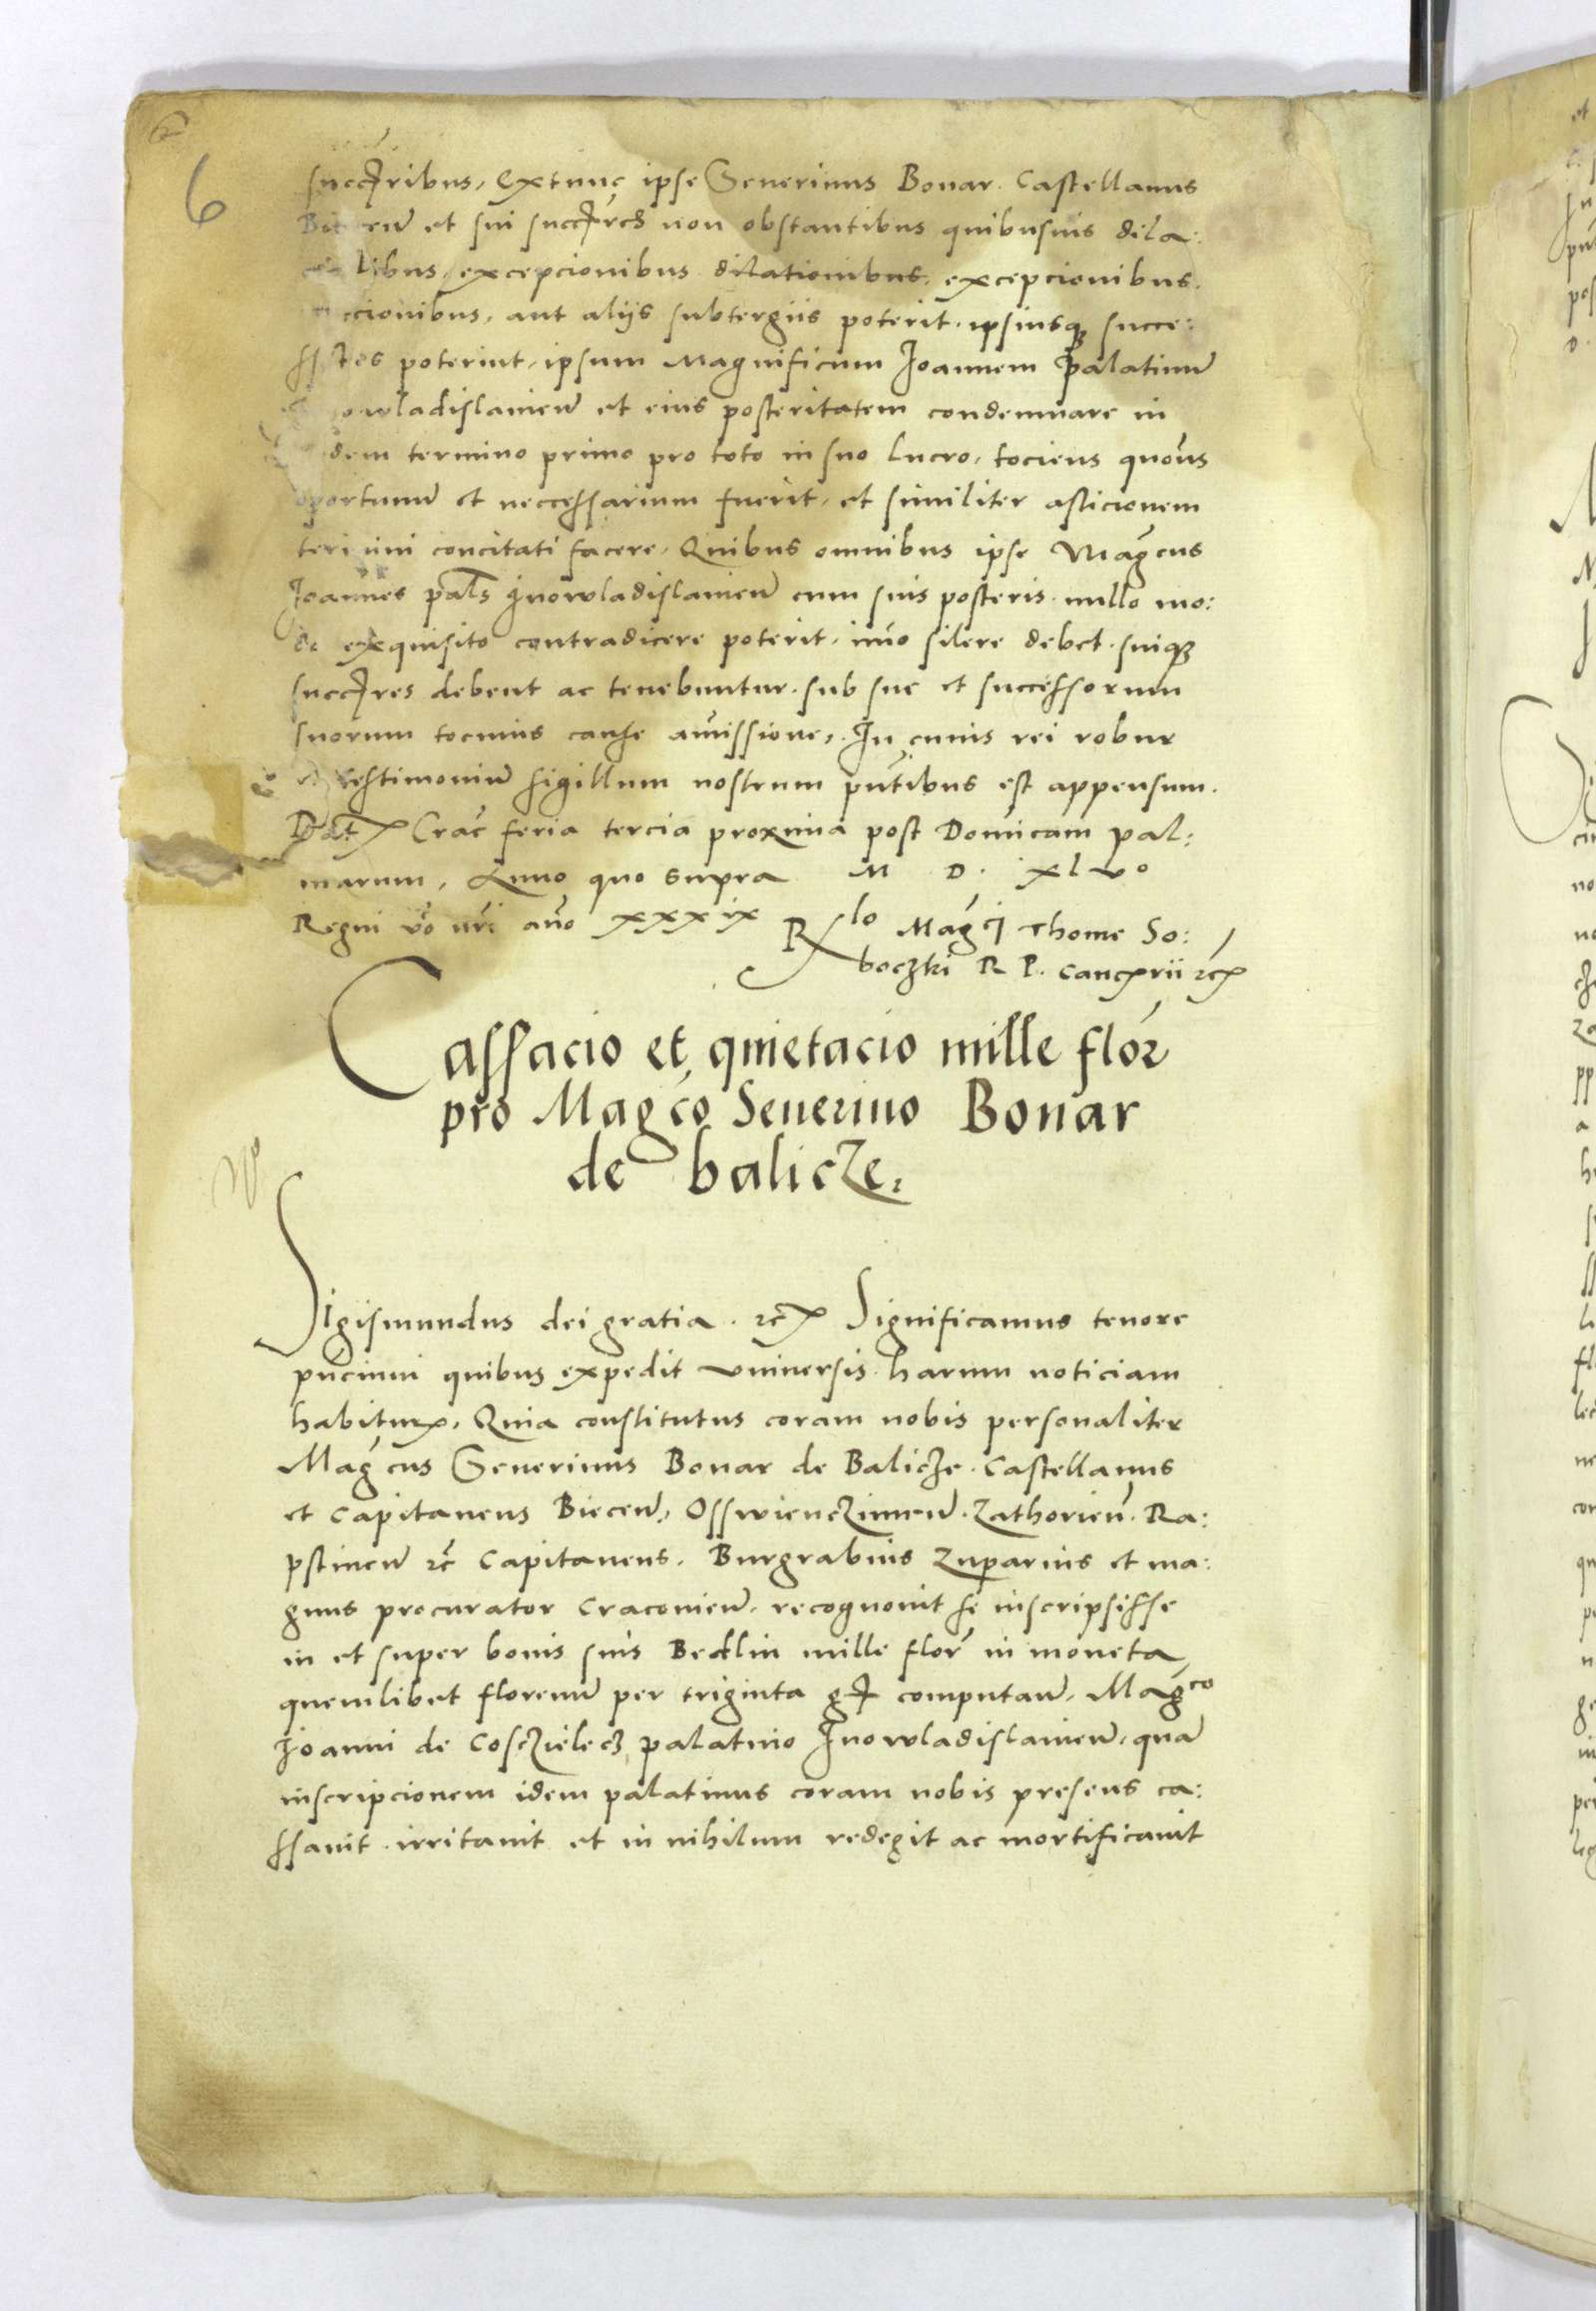 6
succribus, Extunc ipse Severinus Bonar Castellanus
et sui succres non obstantibus quibusuis dila:
libus, excepcionibus dilationibus, excepcionibus.
ccionibus, aut alijs subtergiis poterit, ipsiusq succe:
poterint, ipsum Magnificum Joannem palatinu
wladislauien et eius posteritatem condemnare in
dem termino primo pro toto in suo lucro, tociens quoties
oportunu et neccessarium fuerit, et similiter asticionem
termini concitati facere, Quibus omnibus ipse Magcus
Joannes pals Jnowladislauien cum suis posteris nullo mo:
do exequisito contradicere poterit, imo silere debet suiq
succres debent ac tenebuntur sub sue et successorum
suorum tocius cause amissione, In cuius rei robur
et testimoniu sigillum nostrum pntibus est appensum.
Dat Crac feria tercia proxima post Domicam pal:
marum, Anno quo supra M D. xlvo
Regni vo nri ano xxxix Rlo Magci Thome So:
boczki R P. Cancrii rc
Cassacio et quietacio mille flor
pro Magco Seuerino Bonar
de balicze.
Sigismundus dei gratia rc Significamus tenore
pncium quibus expedit vniuersis harum noticiam
habitur, Quia constitutus coram nobis personaliter
Magcus Severinus Bonar de Balicze Castellanus
et Capitaneus Biecen, Osswienczimen Zathorien Ra:
pstinen rc Capitaneus, Burgrabius Zuparius et ma:
gnus procurator Cracouien, recognouit se inscripsisse
in et super bonis suis Bedlin mille flor in moneta
quemlibet florenu per triginta g computan, Magco
Joanni de Cosczielecz palatino Jnowladislauien, qua
inscripcionem idem palatinus coram nobis presens ca:
ssauit irritauit et in nihilum redegit ac mortificauit